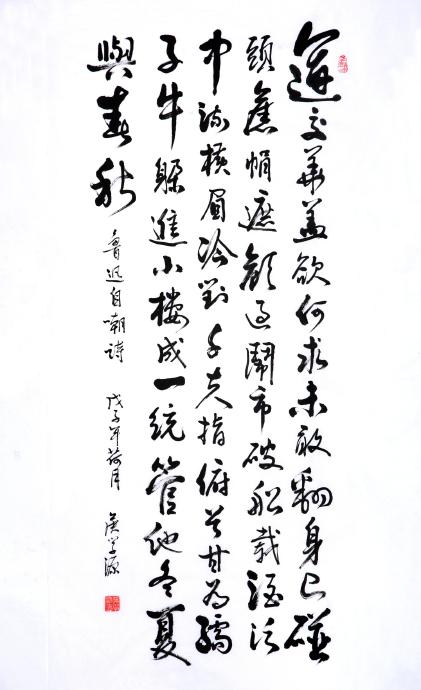 運交華蓋欲何求未敢翻身已碰
頭舊帽遮顏過鬧市破船載酒泛
中流横眉冷對千夫指俯首甘為孺
子牛躲進小樓成一統管他冬夏
與春秋
魯迅自嘲詩 戊子年荷月 学源